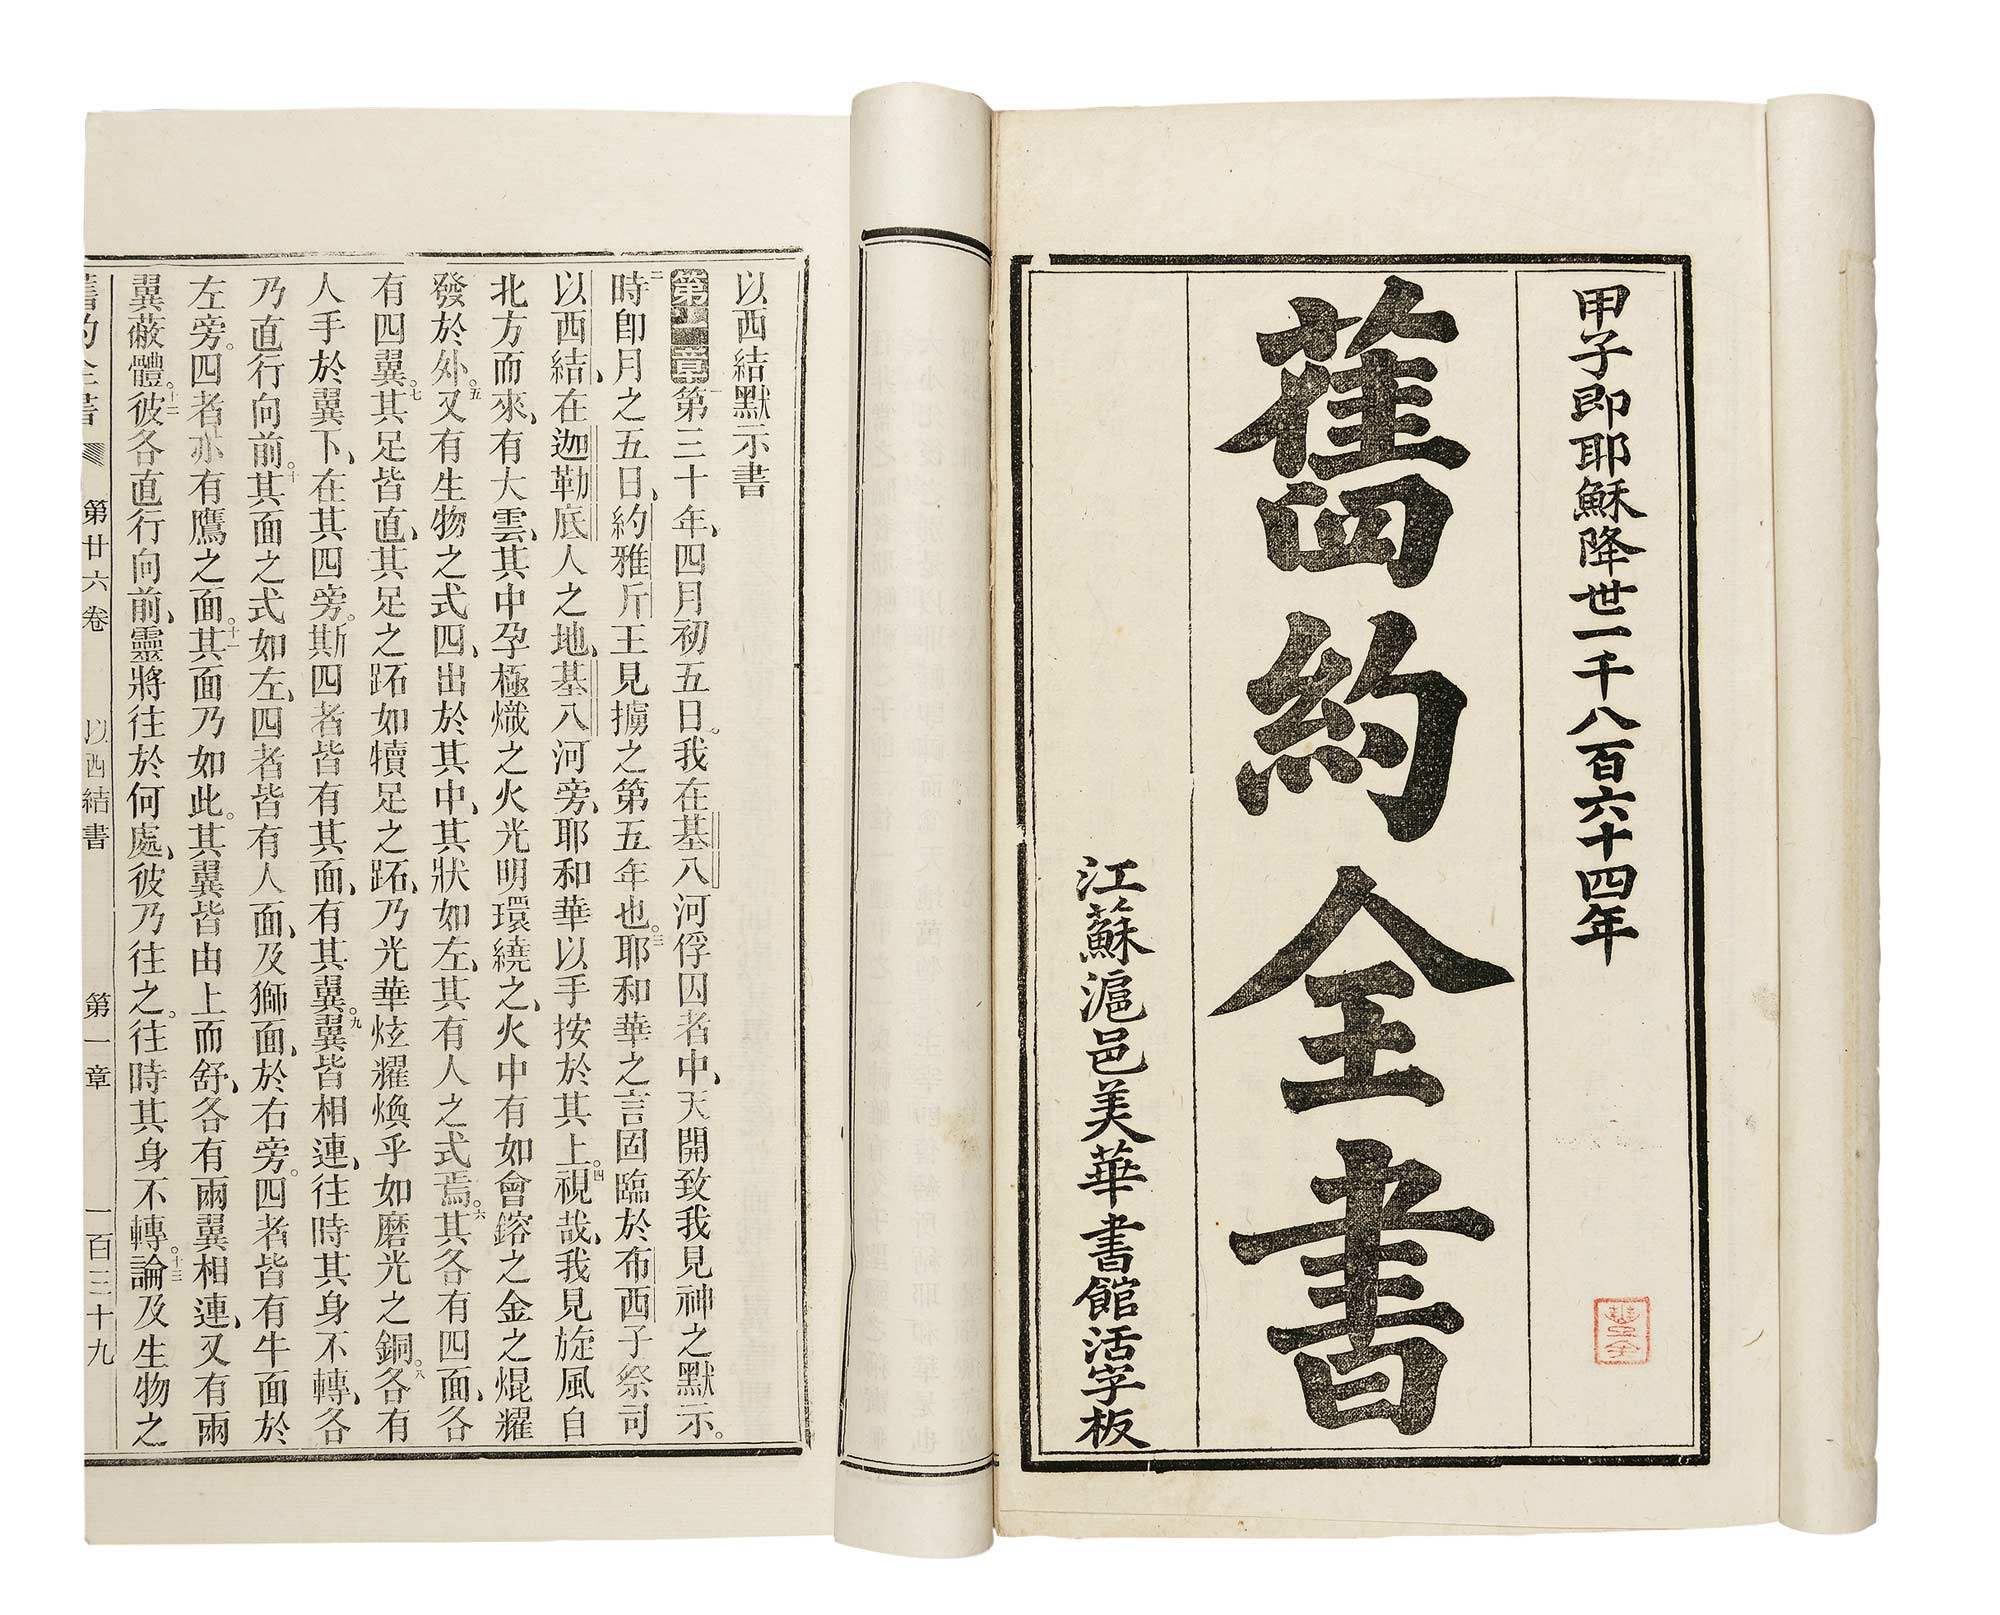 甲子即耶穌降世一千八百六十四年
舊約全書
江蘇滬邑美華書館活字板
以西結默示書
第一章一第三十年、四月初五日。我在基八河俘囚者中、天開致我見神之默示。
二時卽月之五日、約雅斤王見擄之第五年也。三耶和華之言固臨於布西子祭司
以西結、在迦勒底人之地、基八河旁、耶和華以手按於其上。四視哉、我見旋風自
北方而來、有大雲、其中孕極熾之火光明環繞之、火中有如會鎔之金之焜耀
發於外。五又有生物之式四、出於其中、其狀如左、其有人之式焉。六其各有四面、各
有四翼。七其足皆直、其足之跖如犢足之跖、乃光華炫耀煥乎如磨光之銅。八各有
人手於翼下、在其四旁。斯四者皆有其面、有其翼。九翼皆相連、往時其身不轉、各
乃直行向前。十其面之式如左、四者皆有人面、及獅面、於右旁。四者皆有牛面於
左旁。四者亦有鷹之面。十一其面乃如此。其翼皆由上而舒、各有兩翼相連、又有兩
翼蔽體。十二彼各直行向前、靈將往於何處、彼乃往之。往時其身不轉。十三論及生物之
舊約全書 第廿六卷 以西結書 第一章 一百三十九